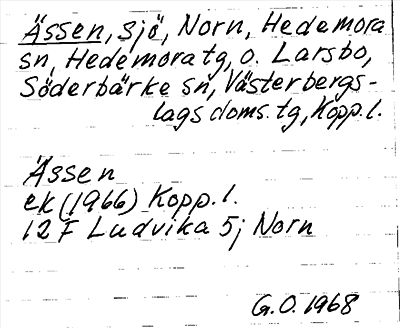 Ässen, sjö, Norn, Hedemora
sn, Hedemora tg, o. Larsbo,
Söderbärke sn, Västerbergs-
lags doms. tg, Kopp. l.
Ässen
ek (1966) Kopp. l.
12 F Ludvika 5j Norn
G.O. 1968